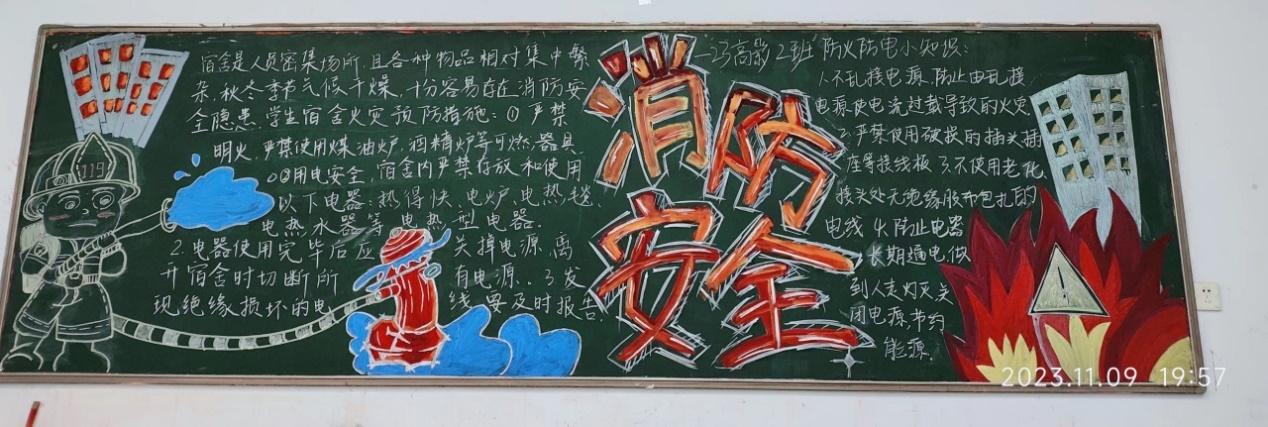 宿舍是人员密集场所,且各种物品相对集中繁
杂,秋冬季节气候干燥,十分容易存在消防安
全隐患,学生宿舍火灾预防措施:① 严禁
明火,严禁使用煤油炉,酒精炉等可燃器具
②用电安全,宿舍内严禁存放和使用
以下电器:热得快、电炉、电热毯、
电热水器等电热型电器.
2.电器使用完毕后应 关掉电源,离
开宿舍时切断所 有电源..3发
现绝缘损坏的电 线要及时报告.
119
消防
安全
23高影2班 防火防电小知识:
1.不乱接电源,防止由乱接
电源使电流过载导致的火灾
2.严禁使用破损的插头插
座等接线板 3.不使用老化,
接头处无绝缘胶布包扎的
电线 4.防止电器
长期通电,做
到人走灯灭,关
闭电源,节约
能源.
2023.11.09 19:57